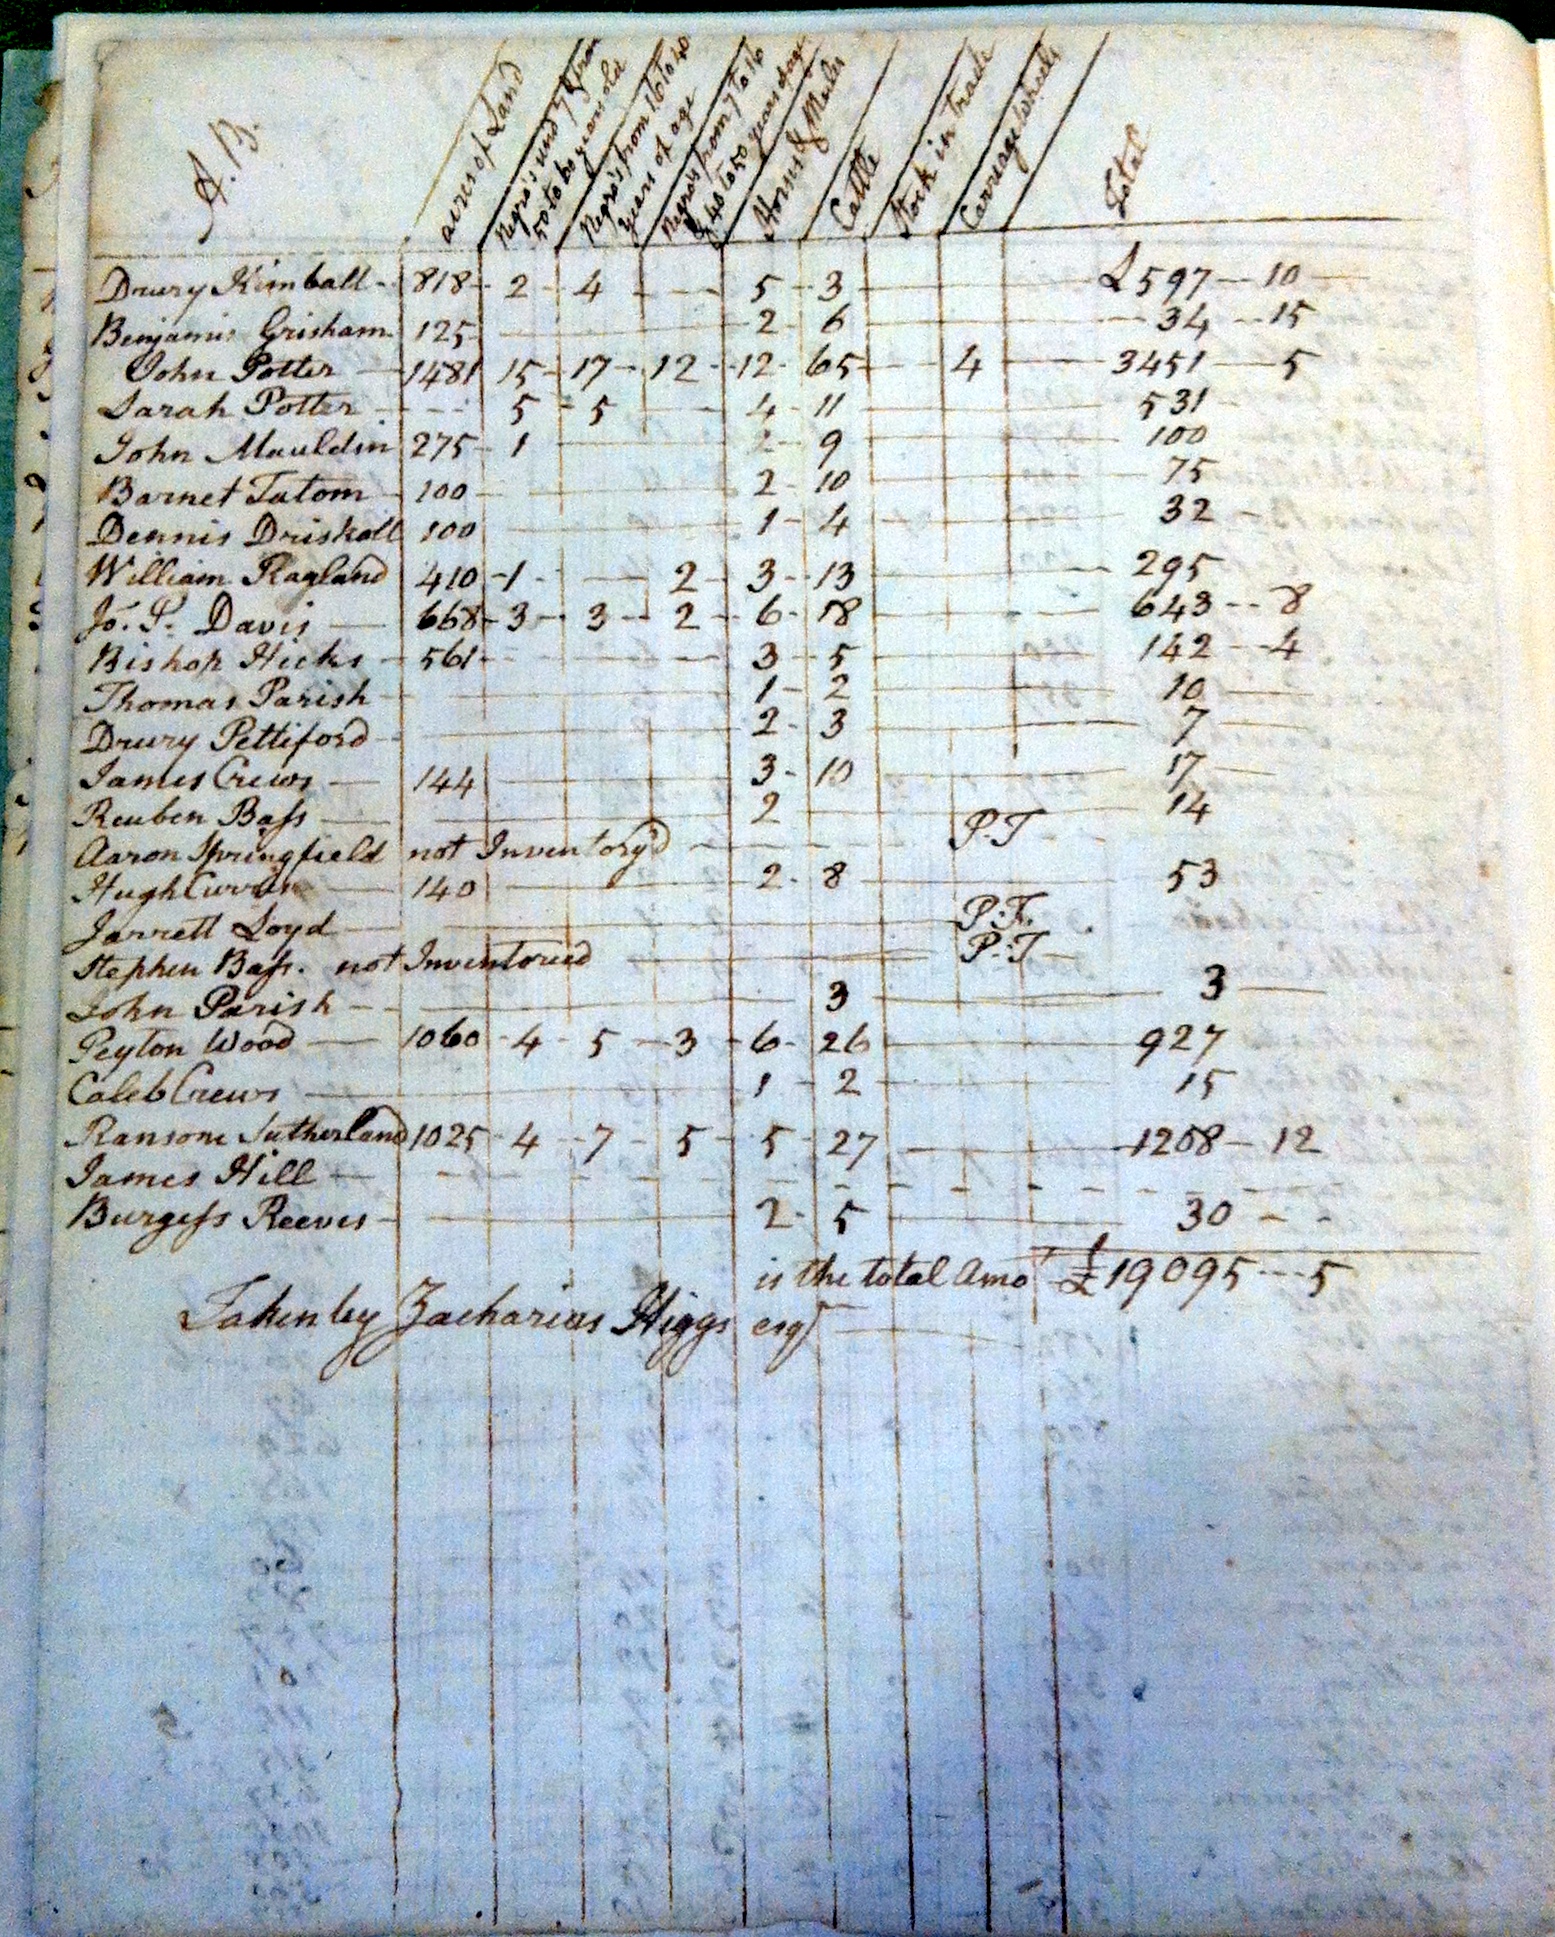 A. B.
acres of Land
Negro's und 7 & from 50 to 60 years old
Negro's from 16 to 40 years of age
Negro's from 7 to 16 & 40 to 50 years of age
Horses & Mules
Cattle
Stock in trade
Carriage Wheels
Total
Drury Kimball - 818 - 2 - 4 - - - 5 - 3 £597 - - 10
Benjamin Grisham 125 2 - 6 34 - - 15
John Potter 1481 15 - 17 - 12 - 12 - 65 4 3451 - 5
Sarah Potter - - - 5 - 5 4 - 11 531
John Mauldin 275 - 1 9 100
Barnet Tatom 100 2 - 10 75
Dennis Driskoll 100 1 - 4 32
William Ragland 410 - 1 - 2 3 - 13 295
Jo. P. Davis 668 - 3 - 3 - 2 - 6 - 18 643 - - 8
Bishop Hicks - 561 3 - 5 142 - - 4
Thomas Parish 1 - 2 10
Drury Pettiford 2 - 3 7
James Crews 144 3 - 10 17
Reuben Bass 2 14
Aaron Springfield not Inventory'd P. T
Hugh 140 2 - 8 53
Jarrett Loyd P. T.
Stephen Bass. not Inventoried P. T
John Parish 3 3
Peyton Wood 1060 - 4 - 5 - 3 - 6 - 26 927
Caleb Crews 1 - 2 15
Ransome Sutherland 1025 - 4 - 7 - 5 - 5 - 27 1208 - 12
James Hill
Burgess Reeves 2 - 5 30 - -
is the total Amo.t £19095 - - 5
Taken by Zacharias Higgs esqr